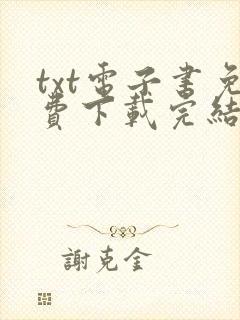 txt電子書免
費下載完結
謝克金